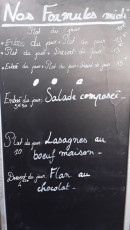 Nos Formules midi
Plat du jour
Entrée du jour + Plat du jour
Plat du jour + Dessert du jour
Entrée du jour + Plat du jour + Dessert du jour
Entrée du jour: Salade composée
Plat du jour: Lasagnes au
boeuf maison
Dessert du jour: Flan au
chocolat